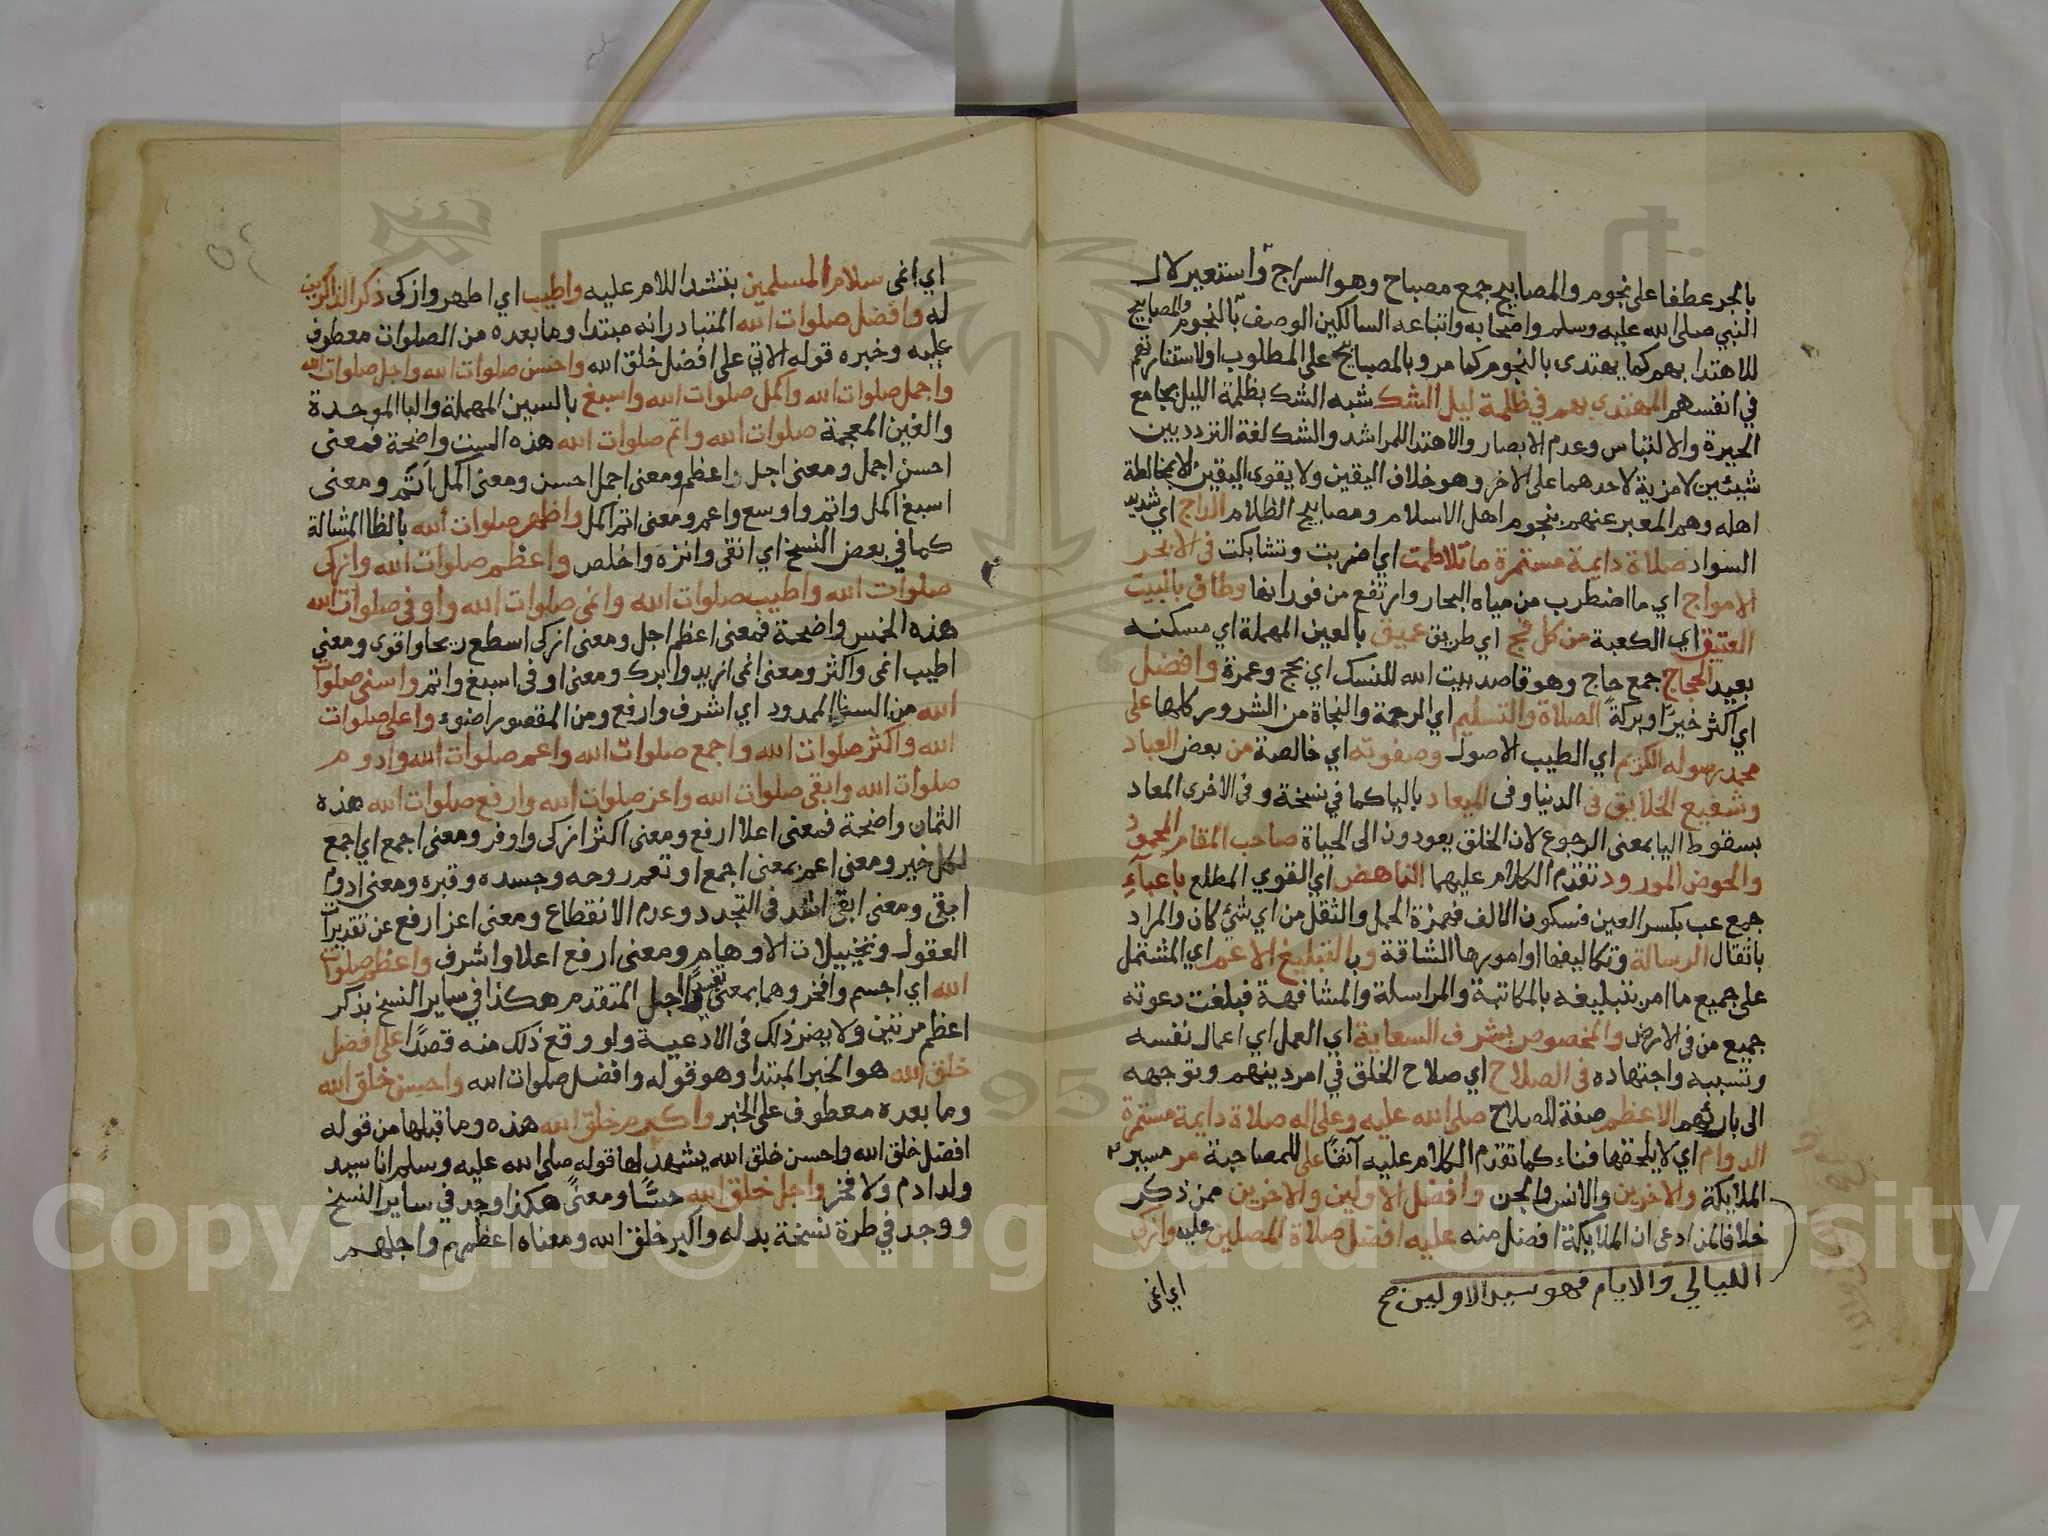 بالجر عطفا على نجوم والمصابيح جمع مصباح وهو السراج واستعير لال
النبي صلى الله عليه وسلم واصحابه واتباعه السالكين الوصف بالنجوم والمصابيح
للاهتدا بهم كما يهتدى بالنجوم كما مر وبالمصابيح على المطلوب او لاستنارتهم
في انفسهم المهتدي بهم في ظلمة ليل الشك شبه الشك بظلمة الليل بجامع
الحيرة والالتباس وعدم الابصار والاهتدا للمراشد والشك لغة التردد بين
شيئين لا مزية لاحدهما على الاخر وهو خلاف اليقين ولا يقوى اليقين الا بمخالطة
اهله وهم المعبر عنهم بنجوم اهل الاسلام ومصابيح الظلام الداج اي شديد
السواد صلاة دايمة مستمرة ما تلاطمت اي اضربت وتشابكت في الابحر
الامواج اي ما اضطرب من مياه البحار وارتفع من فورانها وطاف بالبيت
العتيق اي الكعبة من كل فج اي طريق عميق بالعين المهملة اي مسكنه
بعيد الحجاج جمع حاج وهو قاصد بيت الله للنسك اي بحج وعمرة وافضل
اي اكثر خيرا وبركة الصلاة والتسليم اي الرحمة والنجاة من الشرور كلها على
محمد رسوله الكريم اي الطيب الاصول وصفوته اي خالصة من بعض العباد
وشفيع الخلايق في الدنيا وفي الميعاد باليا كما في نسخة وفي الاخرى المعاد
بسقوط اليا بمعنى الرجوع لان الخلق يعودون الى الحياة صاحب المقام المحمود
والحوض المورود تقدم الكلام عليهما الناهض اي القوي المطلع باعباء
جمع عب بكسر العين فسكون الالف فهمزة الحمل والثقل من اي شي كان والمراد
باثقال الرسالة وتكاليفها وامورها الشاقة وبالتبليغ الاعم اي المشتمل
على جميع ما امر بتبليغه بالمكاتبة والمراسلة والمشافهة فبلغت دعوته
جميع من في الارض والمخصوص بشرف السعاية اي العمل اي اعمال نفسه
وتسببه واجتهاده في الصلاح اي صلاح الخلق في امر دينهم وتوجهه
الى بارئهم الاعظم صفة للصلاح صلى الله عليه وعلى اله صلاة دايمة مستمرة
الدوام اي لا يلحقها فناء كما تقدم الكلام عليه آنفا على للمصاحبة مر مسير
الملايكة والاخرين والانس والجن وافضل الاولين والاخرين ممن ذكر
خلافا لمن ادعى ان الملايكة افضل منه عليه افضل صلاة المصلين عليه وازكى
الليالي والايام فهو سيد الاولين صح
اي انمى
اي انمى سلام المسلمين بتشد اللام عليه واطيب اي اطهر وازكى ذكر الذاكرين
له وافضل صلوات الله المتبادر انه مبتدا وما بعده من الصلوات معطوف
عليه وخبره قوله الاتي على افضل خلق الله واحسن صلوات الله واجل صلوات الله
واجمل صلوات الله واكمل صلوات الله واسبغ بالسين المهملة والبا الموحدة
والغين المعجمة صلوات الله واتم صلوات الله هذه الست واضحة فمعنى
احسن اجمل ومعنى اجل واعظم ومعنى اجمل احسن ومعنى اكمل اتم ومعنى
اسبغ اكمل واتم واوسع واعم ومعنى اتم اكمل واظهر صلوات الله بالظا المشالة
كما في بعض النسخ اي انقى وانزه واخلص واعظم صلوات الله وازكى
صلوات الله واطيب صلوات الله وانمى صلوات الله واوفى صلوات الله
هذه الخمس واضحة فمعنى اعظم اجل ومعنى ازكى اسطع ريحا واقوى ومعنى
اطيب انمى واكثر ومعنى انمى ازيد وابرك ومعنى اوفى اسبغ واتم واسنى صلوات
الله من السنا الممدود اي اشرف وارفع ومن المقصور اضوء واعلى صلوات
الله واكثر صلوات الله واجمع صلوات الله واعم صلوات الله وادوم
صلوات الله وابقى صلوات الله واعز صلوات الله وارفع صلوات الله هذه
الثمان واضحة فمعنى اعلا ارفع ومعنى اكثر ازكى واوفر ومعنى اجمع اي اجمع
لكل خير ومعنى اعم بمعنى اجمع او تعم روحه وجسده وقبره ومعنى ادوم
ابقى ومعنى ابقى اشد في التجدد وعدم الانقطاع ومعنى اعز ارفع عن تقديرات
العقول وتخييلات الاوهام ومعنى ارفع اعلا واشرف واعظم صلوات
الله اي اجسم وافخر وهما بمعنى واجل المتقدم هكذا في ساير النسخ بذكر
اعظم مرتين ولا يضر ذلك في الادعية ولو وقع ذلك منه قصدا على افضل
خلق الله هو الخبر المبتدا وهو قوله وافضل صلوات الله واحسن خلق الله
وما بعده معطوف على الخبر واكرم خلق الله هذه وما قبلها من قوله
افضل خلق الله واحسن خلق الله يشهد لها قوله صلى الله عليه وسلم انا سيد
ولد ادم ولا فخر واجل خلق الله حسا ومعنى هكذا وجد في ساير النسخ
ووجد في طرة نسخة بدله واكبر خلق الله ومعناه اعظمهم واجلهم